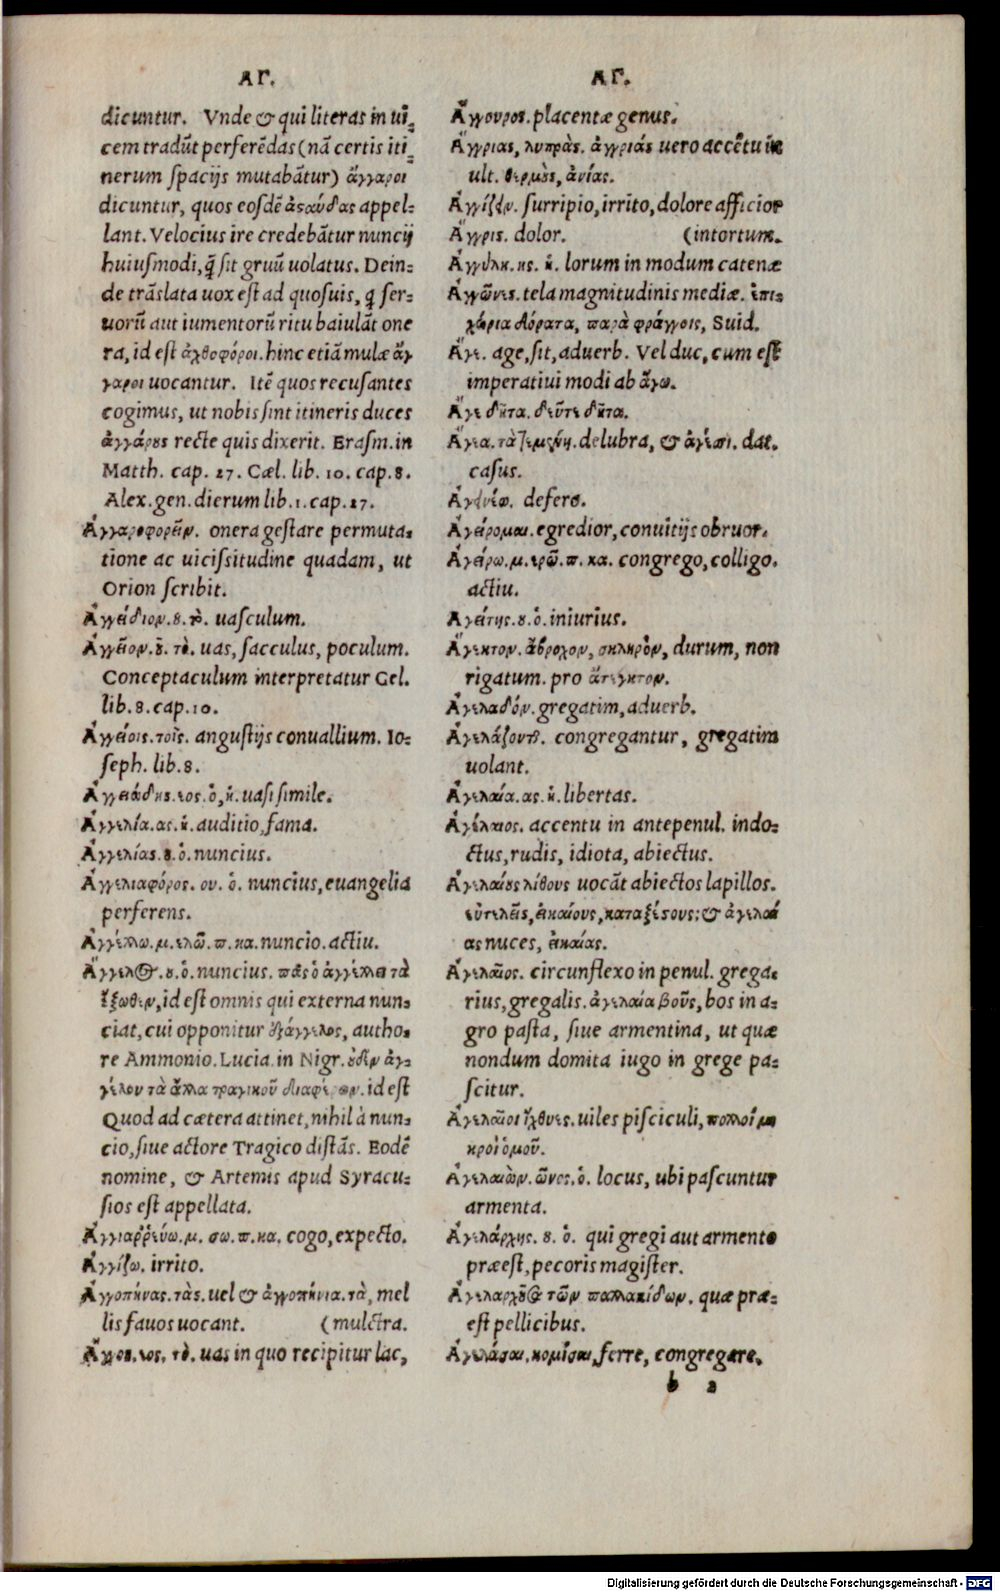 ΑΓ.
dicuntur. Vnde & qui literas in ui⸗
cem tradũt perferẽdas (nã certis iti⸗
nerum spacijs mutabãtur) ἄγγαροι
dicuntur, quos eosdẽ ἀσάνδας appel⸗
lant. Velocius ire credebãtur nuncij
huiusmodi, q̃ sit gruũ uolatus. Dein⸗
de trãslata uox est ad quosuis, q ser⸗
uorũ aut iumentorũ ritu baiulãt one
ra, id est ἀχθοφόροι. hinc etiã mulæ ἄγ
γαροι uocantur. Itẽ quos recusantes
cogimus, ut nobis sint itineris duces
ἀγγάρους recte quis dixerit. Erasm. in
Matth. cap. 27. Cæl. lib. 10. cap. 8.
Alex. gen. dierum lib. 1. cap. 27.
Ἀγγαροφορεῖν. onera gestare permuta⸗
tione ac uicissitudine quadam, ut
Orion scribit.
Ἀγγείδιον. ου. τὸ. uasculum.
Ἀγγεῖον. ου. τὸ. uas, sacculus, poculum.
Conceptaculum interpretatur Gel.
lib. 8. cap. 10.
Ἀγγείοις. τοῖς. angustijs conuallium. Io⸗
seph. lib. 8.
Ἀγγειώδης. εος. ὁ, ἡ. uasi simile.
Ἀγγελία. ας. ἡ. auditio, fama.
Ἀγγελίας. ου. ὁ. nuncius.
Ἀγγελιαφόρος. ου. ὁ. nuncius, euangelia
perferens.
Ἀγγέλλω. μ. ελῶ. π. κα. nuncio. actiu.
Ἄγγελος. ου. ὁ. nuncius. πᾶς ὁ ἀγγέλλει τὰ
ἔξωθεν, id est omnis qui externa nun⸗
ciat, cui opponitur ἐξάγγελος, autho⸗
re Ammonio. Lucia. in Nigr. οὐδὲν ἀγ⸗
γέλου τὰ ἄλλα τραγικοῦ διαφέρων. id est
Quod ad cætera attinet, nihil à nun⸗
cio, siue actore Tragico distãs. Eodẽ
nomine, & Artemis apud Syracu⸗
sios est appellata.
Ἀγγιαῤῥεύω. μ. σω. π. κα. cogo, expecto.
Ἀγγίζω. irrito.
Ἀγγοπήνας. τὰς. uel & ἀγγοπήνια. τὰ, mel
lis fauos uocant. (mulctra.
Ἄγγος. εος. τὸ. uas in quo recipitur lac,
ΑΓ.
Ἄγγουρος. placentæ genus.
Ἄγγριας, λυπρὰς. ἀγγριάς uero accẽtu in
ult. θερμοὺς, ἀνίας.
Ἀγγρίζειν. surripio, irrito, dolore afficior
Ἄγγρις. dolor. (intortum.
Ἀγγύλη. ης. ἡ. lorum in modum catenæ
Ἀγγῶνες. tela magnitudinis mediæ. ἐπι⸗
χώρια δόρατα, παρὰ φράγγοις, Suid.
Ἄγε. age, sit, aduerb. Vel duc, cum est
imperatiui modi ab ἄγω.
Ἄγε δῆτα. δεῦτε δῆτα.
Ἄγεα. τὰ τεμένη. delubra, & ἀγέεσσι. dat.
casus.
Ἀγινέω. defero.
Ἀγείρομαι. egredior, conuitijs obruor.
Ἀγείρω. μ. ερῶ. π. κα. congrego, colligo.
actiu.
Ἀγείτης. ου. ὁ. iniurius.
Ἄγεκτον. ἄβροχον, σκληρὸν, durum, non
rigatum. pro ἄτεγκτον.
Ἀγελαδόν. gregatim, aduerb.
Ἀγελάζονται. congregantur, gregatim
uolant.
Ἀγελαία. ας. ἡ. libertas.
Ἀγέλαιος. accentu in antepenul. indo⸗
ctus, rudis, idiota, abiectus.
Ἀγελαίους λίθους uocãt abiectos lapillos.
εὐτελεῖς, εἰκαίους, καταξέσους: & ἀγελαί
ας nuces, εἰκαίας.
Ἀγελαῖος. circunflexo in penul. grega⸗
rius, gregalis. ἀγελαία βοῦς, bos in a⸗
gro pasta, siue armentina, ut quæ
nondum domita iugo in grege pa⸗
scitur.
Ἀγελαῖοι ἰχθύες. uiles pisciculi, πολλοὶ μι
κροὶ ὁμοῦ.
Ἀγελαιὼν. ῶνος. ὁ. locus, ubi pascuntur
armenta.
Ἀγελάρχης. ου. ὁ. qui gregi aut armento
præest, pecoris magister.
Ἀγελαρχοῦσα τῶν παλλακίδων. quæ præ⸗
est pellicibus.
Ἀγελάσαι, κομίσαι, ferre, congregare.
b 2
Digitalisierung gefördert durch die Deutsche Forschungsgemeinschaft - DFG